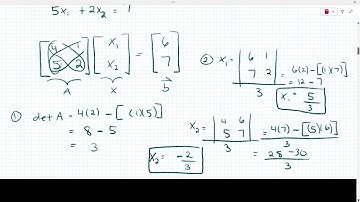 5x₁ + 2x₂ = 7
[4 1 5 2] [x₁ x₂] = [6 7]
A x b
① det A = 4(2) - [(1)(5)]
= 8 - 5
= 3
② x₁ = |6 1 7 2| / 3 = 6(2) - [(1)(7)]
= 12 - 7
x₁ = 5/3
x₂ = |4 6 5 7| / 3 = 4(7) - [(5)(6)] / 3
= 28 - 30 / 3
x₂ = -2/3